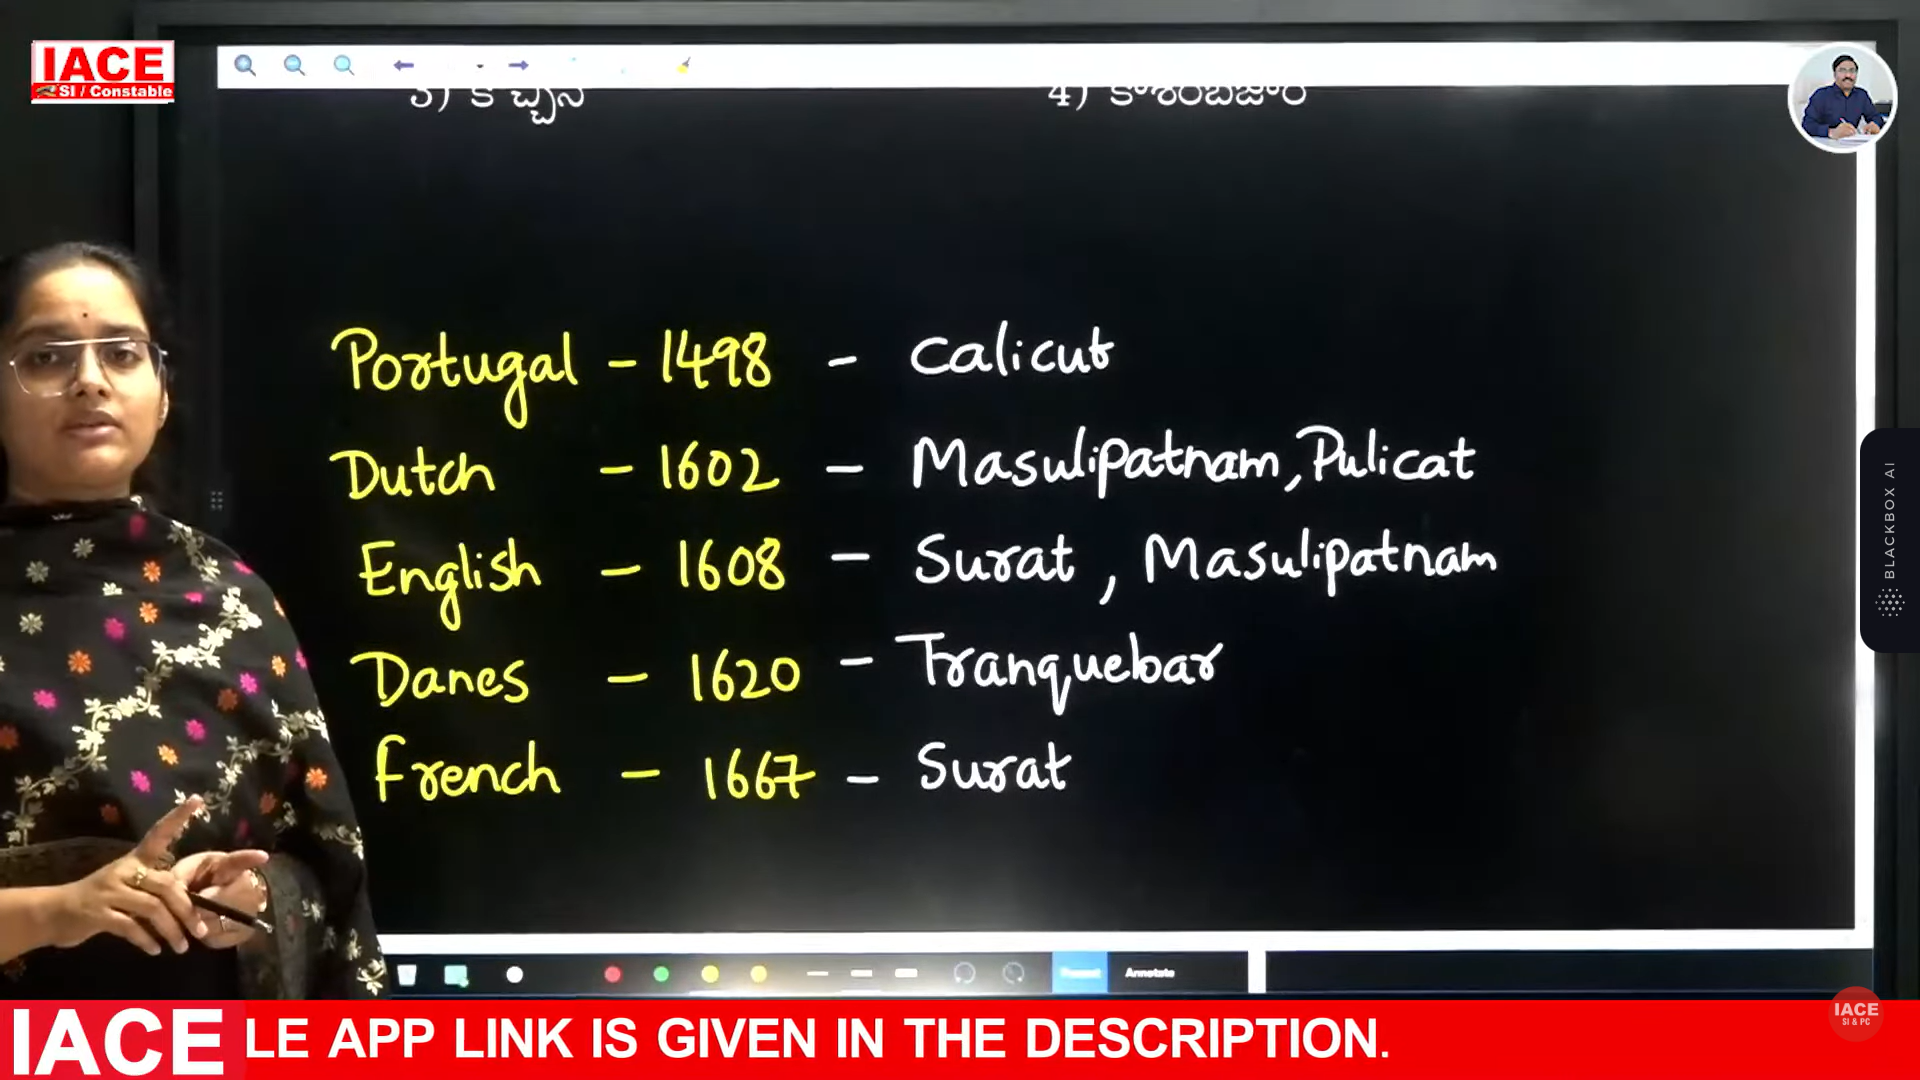 IACE
SI / Constable
4) కాశింబజార్
Portugal - 1498 - Calicut
Dutch - 1602 - Masulipatnam, Pulicat
English - 1608 - Surat, Masulipatnam
Danes - 1620 - Tranquebar
French - 1667 - Surat
BLACKBOX AI
Annotate
IACE
SI & PC
IACE LE APP LINK IS GIVEN IN THE DESCRIPTION.